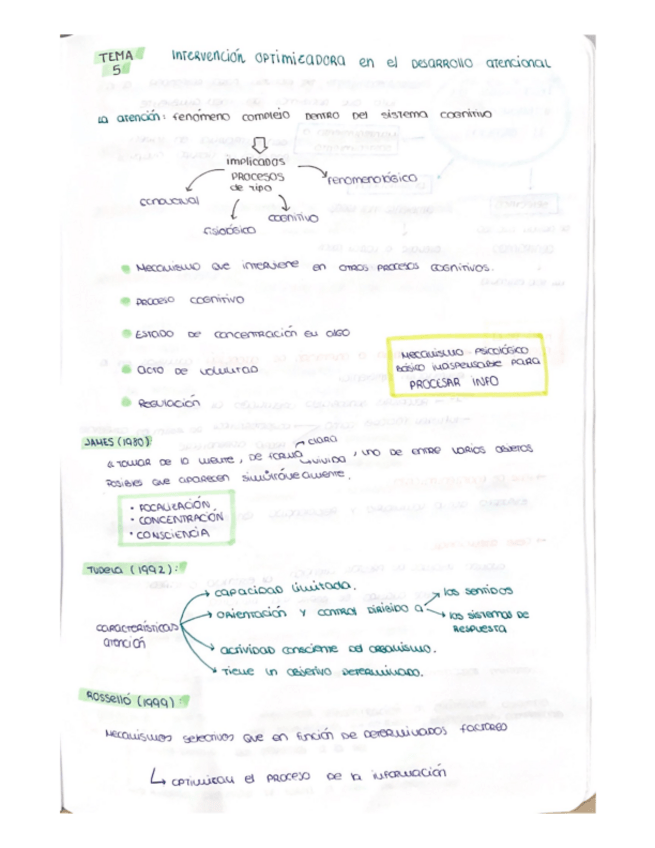 TEMA 5 Intervención optimizadora en el desarrollo atencional
La atención: fenómeno complejo dentro del sistema cognitivo
implicados
procesos
de tipo
fenomenológico
conductual
cognitivo
fisiológico
Mecanismo que interviene en otros procesos cognitivos.
Proceso cognitivo
Estado de concentración en algo
Acto de voluntad
Regulación
Mecanismo psicológico
básico indispensable para
procesar info
JAMES (1980):
la tomar de la mente, de forma clara / vívida, uno de entre varios objetos
posibles que aparecen simultáneamente.
• FOCALIZACIÓN
• CONCENTRACIÓN
• CONSCIENCIA
Tudela (1992):
características atención
capacidad limitada.
orientación y control dirigido a
los sentidos
los sistemas de respuesta
actividad consciente del organismo.
tiene un objetivo determinado.
Rosselló (1999):
Mecanismos selectivos que en función de determinados factores
optimizan el proceso de la información